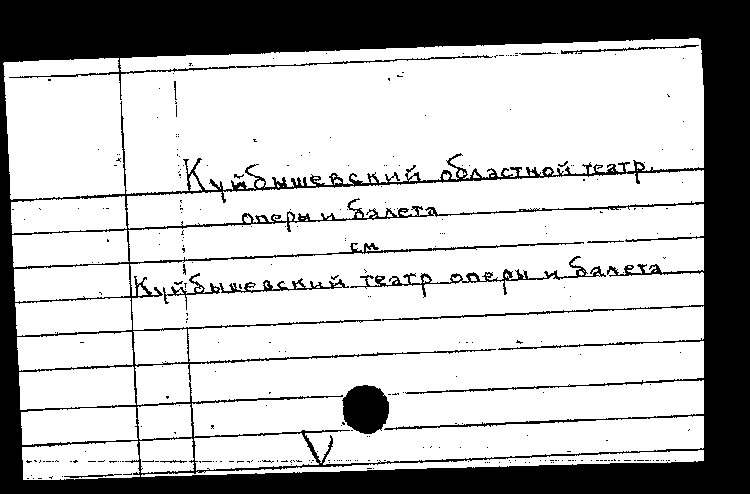 Куйбышевский областной театр.
оперы и балета
см
Куйбышевский театр оперы и балета
V